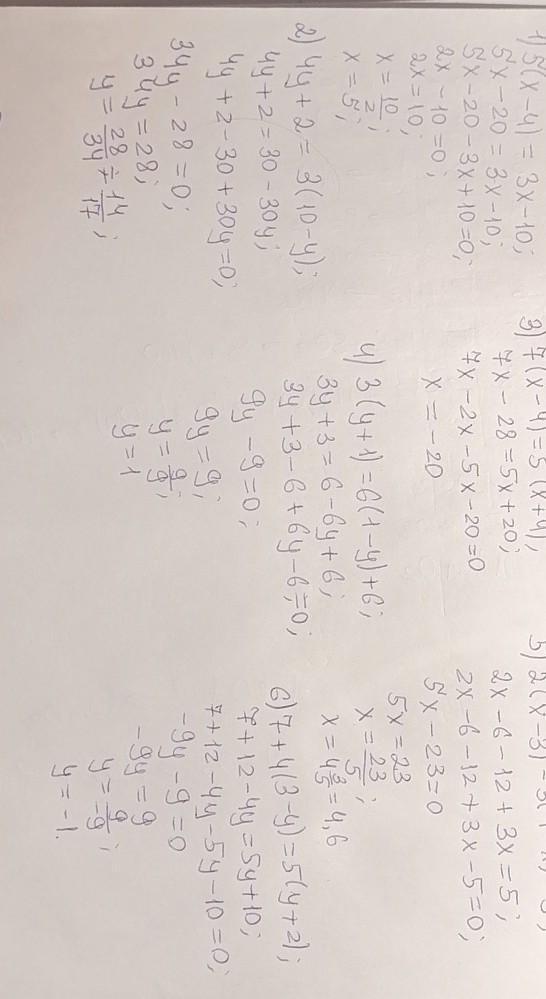 1) 5(x-4) = 3x-10;
5x-20 = 3x-10;
5x-20-3x+10=0;
2x-10=0;
2x=10;
x = 10/2;
x = 5;
2) 4y+2 = 3(10-y);
4y+2=30-30y;
4y+2-30+30y=0;
34y-28=0;
34y=28;
y = 28/34 = 14/17;
3) 7(x-4)=5(x+4);
7x-28=5x+20;
7x-2x-5x-20=0
x = -20
4) 3(y+1)=6(1-y)+6;
3y+3=6-6y+6;
3y+3-6+6y-6=0;
9y-9=0;
9y=9;
y=9/9;
y=1
5) 2(x-3)-3
2x-6-12+3x=5;
2x-6-12+3x-5=0;
5x-23=0
5x=23
x=23/5;
x=4 3/5=4,6
6) 7+4(3-y)=5(y+2);
7+12-4y=5y+10;
7+12-4y-5y-10=0;
-9y-9=0
-9y=9
y=9/-9;
y=-1.